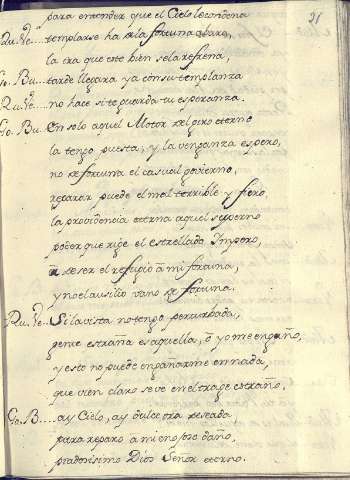 21
para entender que el Cielo le condena
Ru. Ve. templarse ha sela fortuna claro,
la era que este bien sela refrena,
Go. Bu. tarde llegara ya con su templanza
Ru. Ve. no hace si te guarda tu esperanza.
Go. Bu. En solo aquel Motor del giro eterno
la tengo puesta, y la venganza espero,
no de fortuna el casual govierno,
reparar puede el mal terrible y fiero,
la providencia eterna aquel superno
poder que rige el estrellado Imperio,
a de ser el refugio â mi fortuna,
y no el ausilio vano de fortuna.
Ru. Ve. Si la vista no tengo perturbada,
gente estraña es aquella, ô yo me engaño,
y esto no puede engañarme en nada,
que vien claro se ve en el trage estraño,
Go. B. ay Cielo, ay dulce ora deseada
para reparo a mi enojoso daño,
piadosisimo Dios Señor eterno.